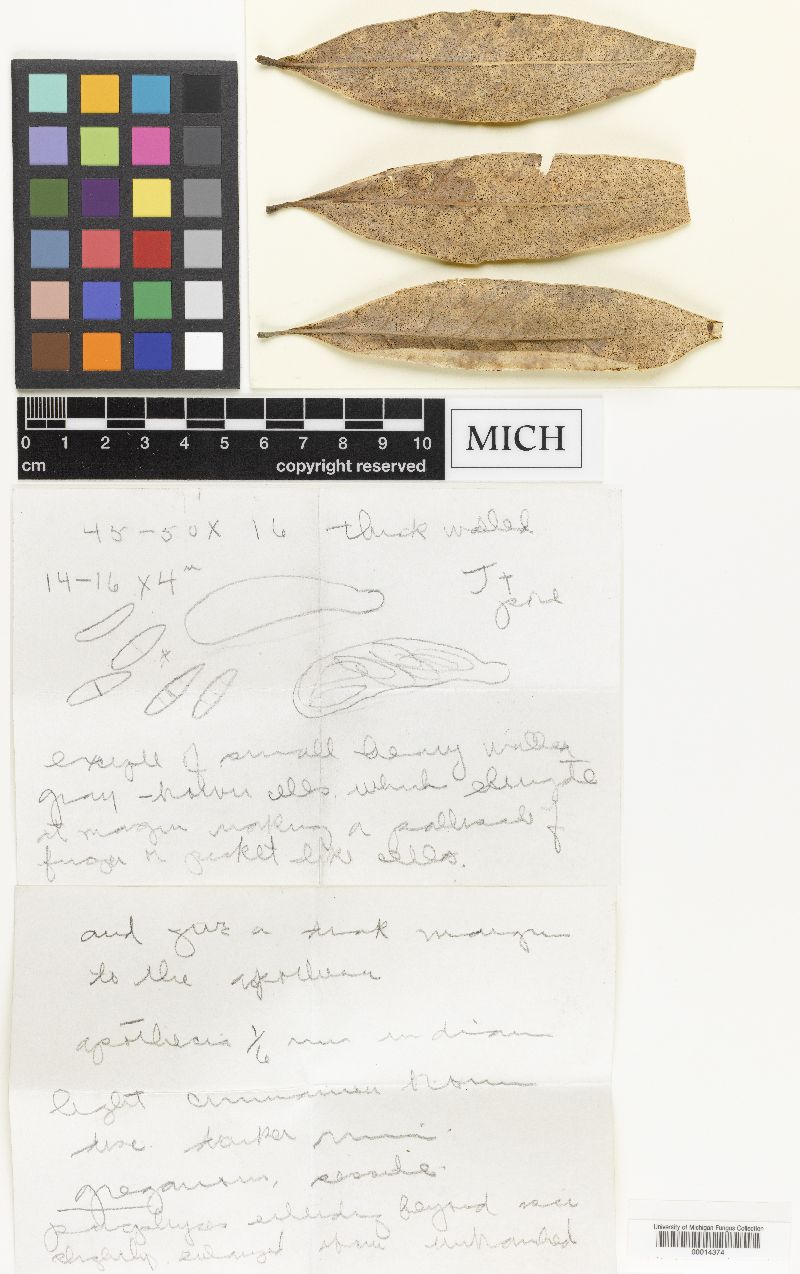 0 1 2 3 4 5 6 7 8 9 10
cm copyright reserved
MICH
45-50 X 16 thick walled
14-16 X 4 J+
pore
exciple of small heavy walled
gray-brown cells which elongate
at margin making a palisade of
finger or picket like cells.
and give a thick margin
to the apothecia
apothecia 1/6 mm in diam
light cinnamon brown
disc darker rim.
gregarious, sessile.
paraphyses extending beyond asci
slightly enlarged above unbranched
University of Michigan Fungus Collection
00014374